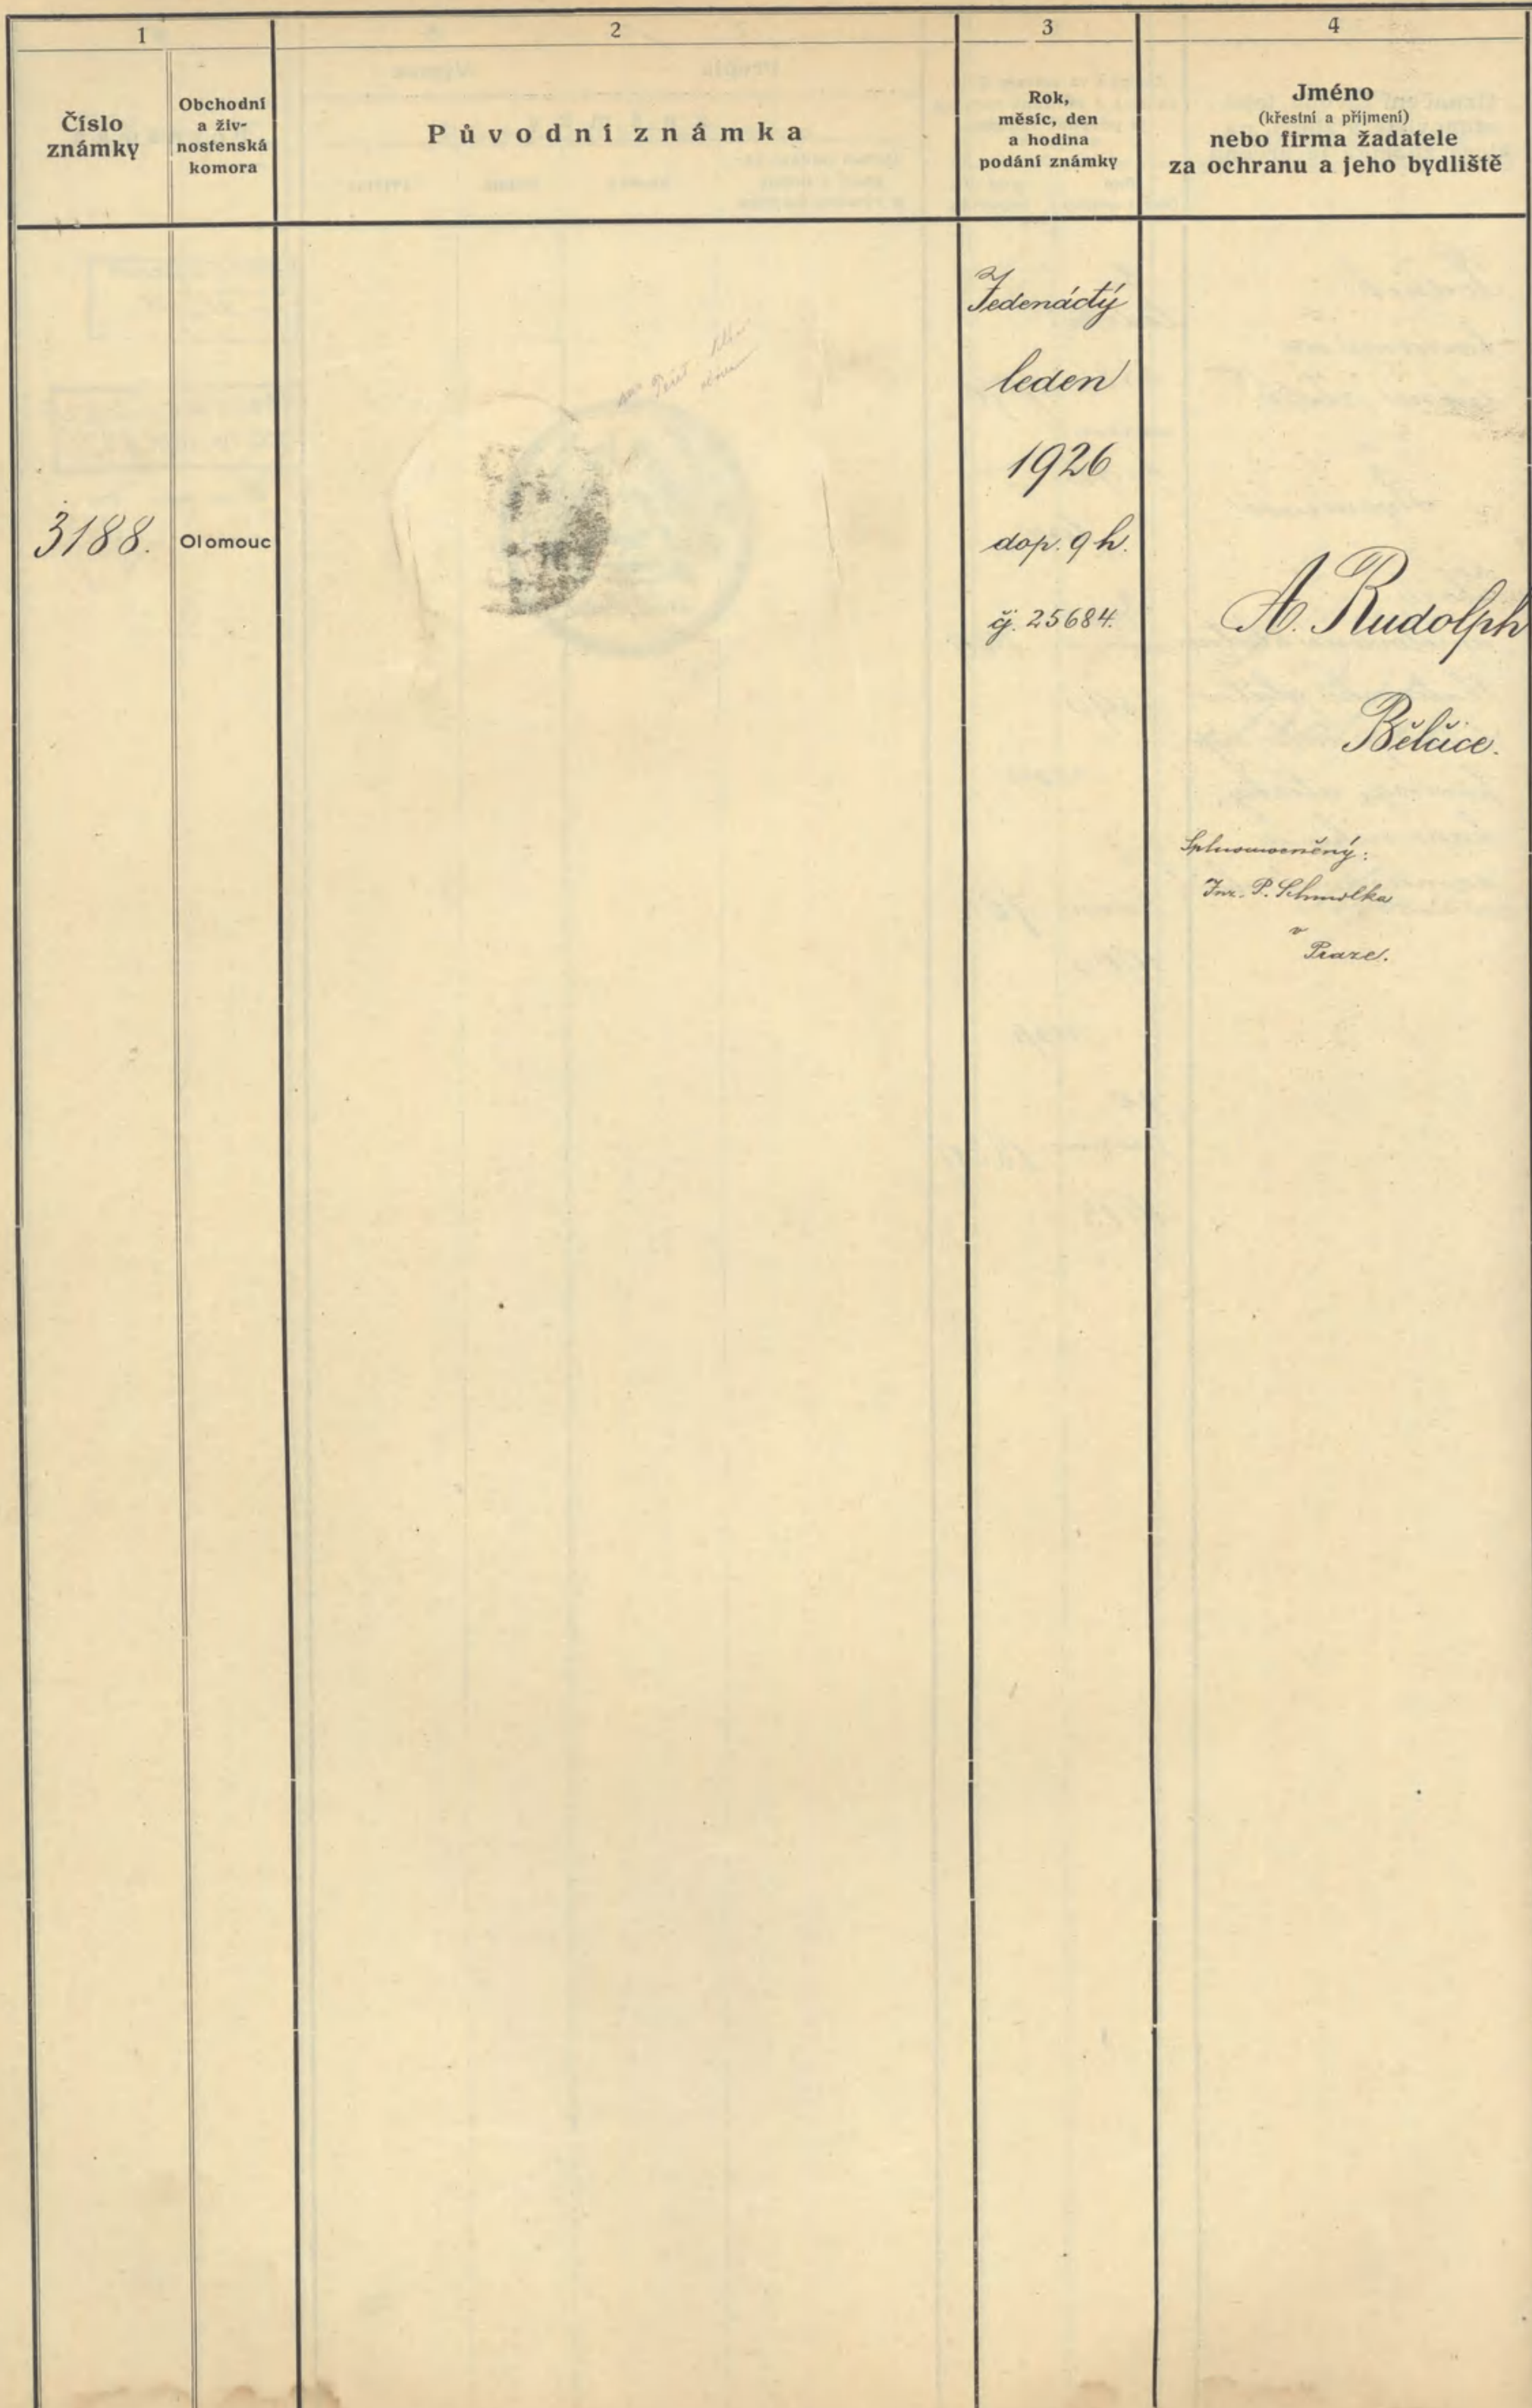 1
2
3
4
Číslo
známky
Obchodní
a živ-
nostenská
komora
Původní známka
Rok,
měsíc, den
a hodina
podání známky
Jméno
(křestní a příjmení)
nebo firma žadatele
za ochranu a jeho bydliště
3188.
Olomouc
Jedenáctý
leden
1926
dop. 9 h.
čj. 25684.
A. Rudolph
Bělčice.
Splnomocněný:
Inž. P. Schmolka
v
Praze.